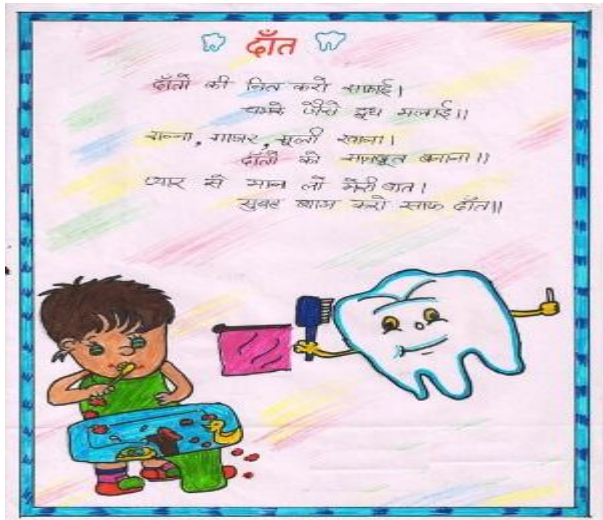 दाँत
दाँतों की नित करो सफाई।
चमके जैसे दूध मलाई॥
गन्ना, गाजर, मूली खाना।
दाँतों को मजबूत बनाना॥
प्यार से मान लो मेरी बात।
सुबह शाम करो साफ दाँत॥